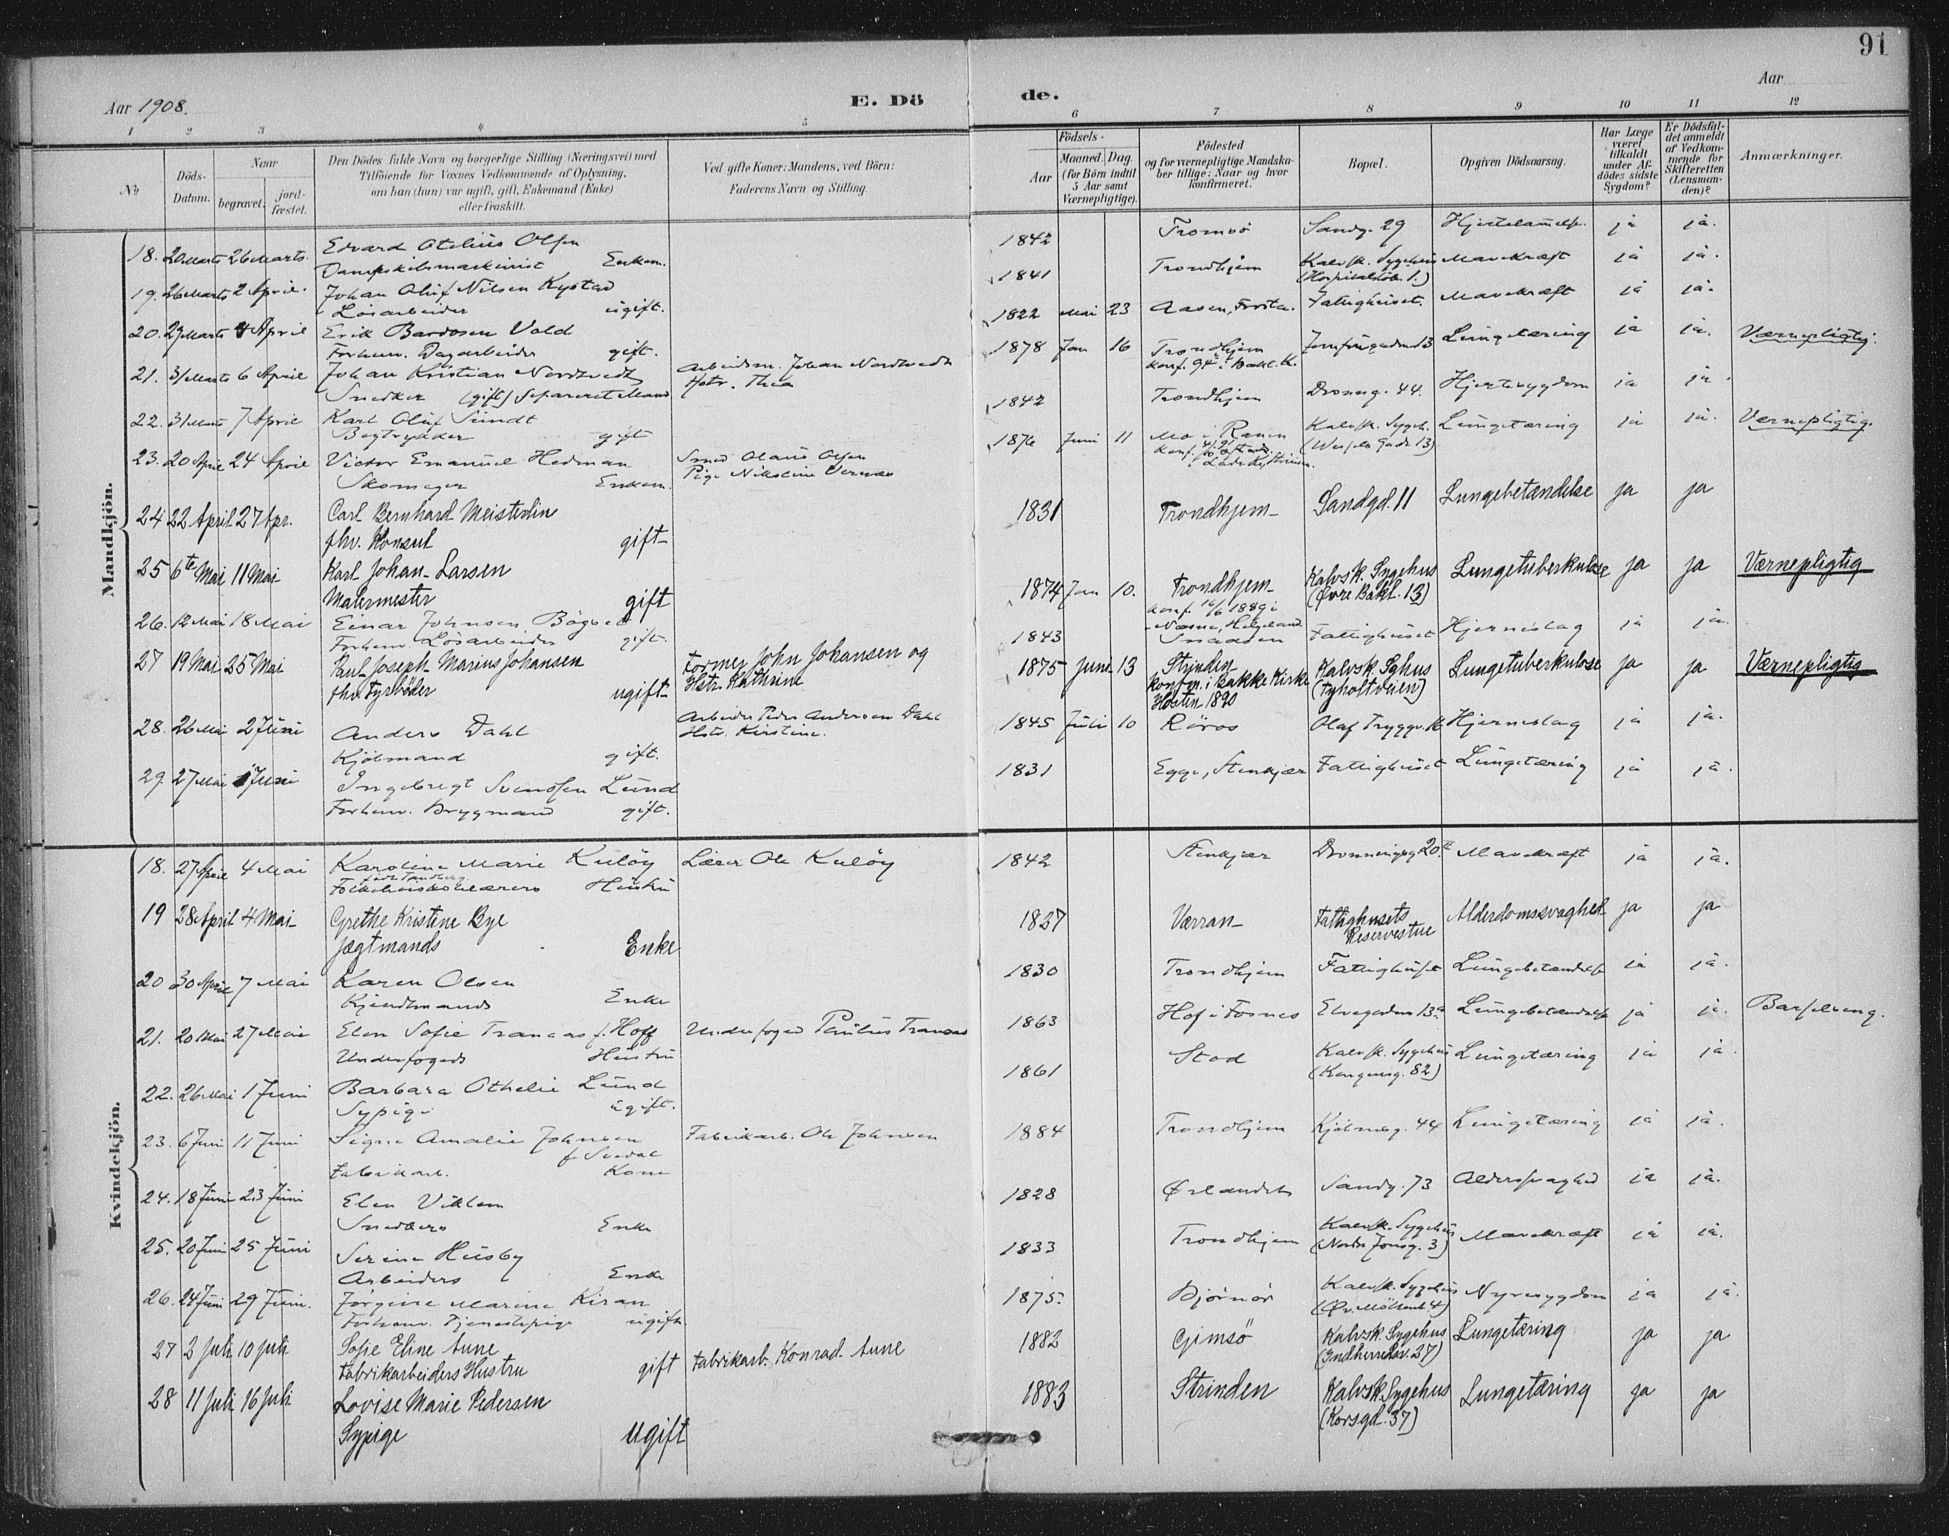 91
Aar 1908.
E. Dö de.
Aar
1 2 3 4 5 6 7 8 9 10 11 12
No
Döds-Datum.
Naar
begravet.
jord-fæstet.
Den Dödes fulde Navn og borgerlige Stilling (Næringsvei) med
Tilföiende for Voxnes Vedkommende af Oplysning,
om han (hun) var ugift, gift, Enkemand (Enke)
eller fraskilt.
Ved gifte Koner: Mandens, ved Börn:
Faderens Navn og Stilling.
Födsels-
Aar
Maaned. Dag.
(for Börn indtil
5 Aar samt
Værnepligtige).
Födested
og for værnepligtige Mandska-
ber tillige: Naar og hvor
konfirmeret.
Bopæl.
Opgiven Dödsaarsag.
Har Læge
været
tilkaldt
under Af-
dödes sidste
Sygdom?
Er Dödsfal-
det anmeldt
af Vedkom-
mende for
Skifteretten
(Lensman-
den)?
Anmærkninger.
Mandkjön.
18. 20 Marts 26 Marts. Edvard Otelius Olsen 1842 Tromsö Sandg. 29 Hjertelammelse ja ja.
Dampskibsmaskinist Enkem.
19. 26 Marts 2 April. Johan Oluf Nilsen Kystad 1841 Trondhjem Kalvsk. Sygehus Mavekræft ja ja.
Løsarbeider ugift. (Hospitalsløk. 1.)
20. 29 Marts 4 April Erik Bardosen Vold 1822 Mai 23 Aasen, Frosta. Fattighuset. Mavekræft ja ja.
Forhenv. Dagarbeider gift.
21. 31 Marts 6 April Johan Kristian Nordtvedt Arbeidsm. Johan Nordtvedt 1878 Jan 16 Trondhjem Jomfrugaden 13 Lungetæring ja ja. Værnepligtig.
Snedker (gift) Separeret Mand Hstr. Thea Konf. 94 i Bakl. K.
22. 31 Marts 7 April Karl Oluf Sundt 1842 Trondhjem Dronng. 44. Hjertesygdom ja ja.
Bogtrykker gift
23. 20 April 24 April Victor Emanuel Hedman Smed Olaus Olsen 1876 Juni 11 Mo i Ranen Kalvsk. Sygeh. Lungetæring ja ja. Værnepligtig.
Skomager Enkem. Pige Nikoline (Wessels Gade 13)
24 22 April 27 Apr. Carl Bernhard Meisterlin 1831 Trondhjem Sandgd. 11 Lungebetændelse ja ja
fhv. Konsul gift
25 6te Mai 11 Mai Karl Johan Larsen 1874 Jan 10. Trondhjem Kalvsk. Sygehus Lungetuberkulose ja ja Værnepligtig
Malermester gift konf. 1889 i (Øvre Bakl. 13)
Næsne, Helgeland
26. 12 Mai 18 Mai Einar Johnsen 1843 Snaasen Fattighuset Hjerneslag ja ja.
Forhenv. Løsarbeider gift.
27 19 Mai 25 Mai Paul Joseph Marius Johansen Former John Johansen og 1875 Juni 13 Strinden Kalvsk. Sghus Lungetuberkulose ja ja Værnepligtig
fhv. fyrbøder ugift Hstr. Kathrine Konfm. i Bakke Kirke (Tyholtveien)
Høsten 1890
28. 26 Mai 2 Juni Anders Dahl Arbeider Peder Andersen Dahl 1845 Juli 10 Røros Olaf Tryggv. Hjerneslag ja ja.
Kjøbmand gift. Hstr. Kirstine.
29. 27 Mai 1 Juni Ingebrigt Svendsen Lund 1831 Egge, Stenkjær Fattighuset Lungetæring ja ja.
Forhenv. Brygmand gift.
Kvindekjön.
18. 27 April 4 Mai Karoline Marie Kuløy Lærer Ole Kuløy 1842 Stenkjær Dronningsg. 20 Mavekræft ja ja.
Hustru
19 28 April 4 Mai Grethe Kristine Bye 1837 Værran Fattighusets Alderdomssvaghed ja ja
Jægtmands Enke Reservestue
20 30 April 7 Mai Karen Olsen 1830 Trondhjem Fattighuset Lungebetændelse ja ja.
Enke
21. 20 Mai 27 Mai Elen Sofie Tranaas f. Hoff Underfoged Paulus Tranaas 1863 Hof i Fosnes Elvegaden 13a. Lungebetændelse ja ja. Barselseng.
Underfogeds Hustru
22. 26 Mai 1 Juni Barbara Othelie Lund 1861 Stod Kalvsk. Sygehus Lungetæring ja ja.
Sypige ugift. (Kongensg. 82)
23. 6 Juni 11 Juni Signe Amalie Johnsen Fabrikarb. Ole Johnsen 1884 Trondhjem Kjøbmg. 44 Lungetæring ja ja.
Fabrikarb. Kone
24. 18 Juni 23 Juni Elen Viklem 1828 Ørlandet Sandg. 73 Alderssvaghed ja ja.
Snedkers Enke
25. 20 Juni 25 Juni Serine Husby 1833 Trondhjem Kalvsk. Sygehus Mavekræft ja ja.
Arbeiders Enke
26. 24 Juni 29 Juni. Jørgine Marine Kiran 1875. Bjørnør Kalvsk. Sygehus Nyresygdom ja ja.
Forhenv. Tjenestepige ugift (Øv. Møllenb. 4)
27 2 Juli 10 Juli Sofie Eline Aune Fabrikarb. Konrad Aune 1882 Gimsö Kalvsk. Sygehus Lungetæring ja ja
Fabrikarbeiders Hustru gift (Indherredsv. 37)
28 11 Juli 16 Juli Lovise Marie Pedersen 1883 Strinden Kalvsk. Sygehus Lungetæring ja ja
Sypige Ugift (Korsgd. 37)